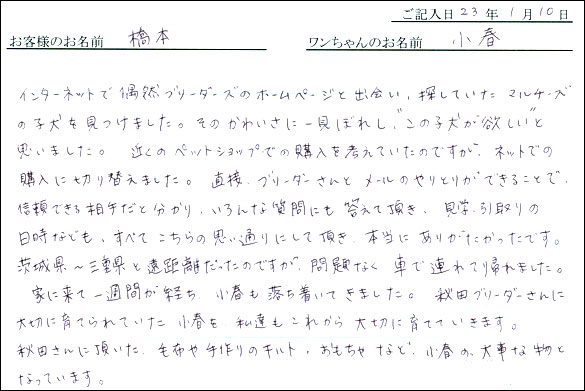 ご記入日 23 年 1 月 10 日
お客様のお名前 橋本 ワンちゃんのお名前 小春
インターネットで偶然ブリーダーズのホームページと出会い、探していたマルチーズ
の子犬を見つけました。そのかわいさに一見ぼれし、"この子犬が欲しい"と
思いました。 近くのペットショップでの購入を考えていたのですが、ネットでの
購入に切り替えました。 直接、ブリーダーさんとメールのやりとりができることで、
信頼できる相手だと分かり、いろんな質問にも答えて頂き、見学、引取りの
日時なども、すべてこちらの思い通りにして頂き、本当にありがたかったです。
茨城県~三重県と遠距離だったのですが、問題なく車で連れて帰れました。
家に来て一週間が経ち、小春も落ち着いてきました。 秋田ブリーダーさんに
大切に育てられていた小春を、私達もこれから大切に育てていきます。
秋田さんに頂いた、毛布や手作りのキルト、おもちゃなど、小春の、大事な物と
なっています。